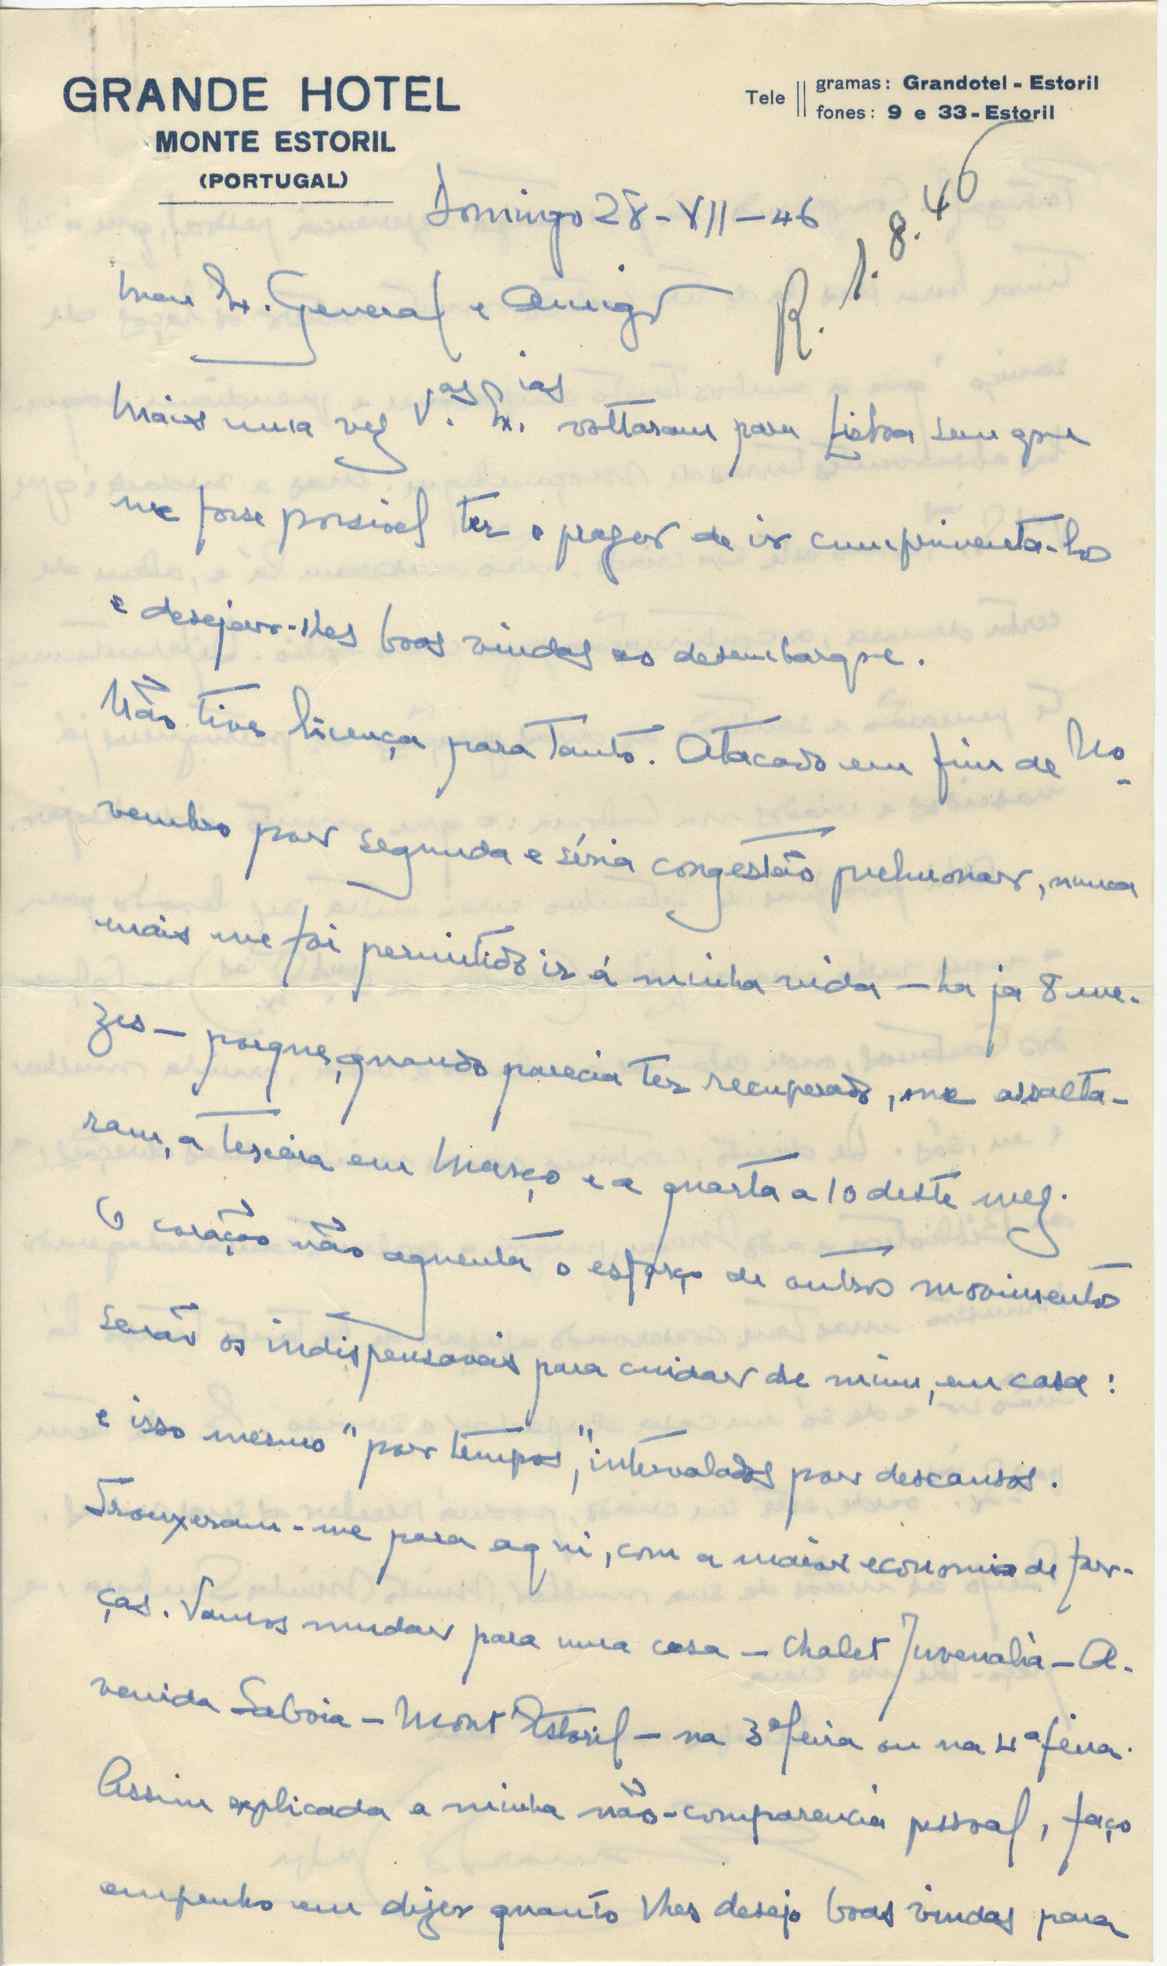 GRANDE HOTEL
MONTE ESTORIL
(PORTUGAL)
Tele
gramas: Grandotel - Estoril
fones: 9 e 33 - Estoril
Domingo 28-VII-46
R. 1.8.46
Meu Ex. General e Amigo
Mais uma vez V.as Ex.ias voltaram para Lisboa sem que
me fosse possivel ter o prazer de ir cumprimenta-los
e desejar-lhes boas vindas ao desembarque.
Não tive licença para tanto. Atacado em fim de No-
vembro por segunda e séria congestão pulmonar, nunca
mais me foi permitido ir á minha vida - ha já 8 me-
zes - porque, quando parecia ter recuperado, me assalta-
ram, a terceira em Março e a quarta a 10 deste mez.
O coração não aguenta o esforço de outros movimentos
senão os indispensavais para cuidar de mim, em casa:
e isso mesmo "por tempos", intervalados por descansos.
Trouxeram-me para aqui, com a maior economia de for-
ças. Vamos mudar para uma casa - Chalet Juvenalia - A-
venida Saboia - Mont'Estoril - na 3ª feira ou na 4ª feira.
Assim explicada a minha não-comparencia pessoal, faço
empenho em dizer quanto lhes desejo boas vindas para